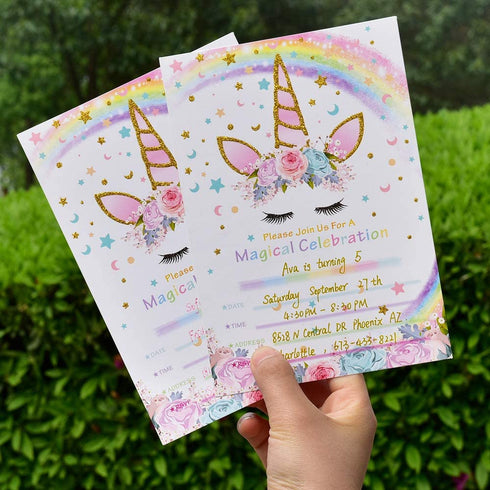 Please Join Us For A
Magical Celebration
Ava is turning 5
DATE Saturday September 27th
TIME 4:30PM - 8:30PM
ADDRESS 8618 N Central DR Phoenix AZ
673-433-8221
Please
Magical
DATE
TIME
ADDRESS